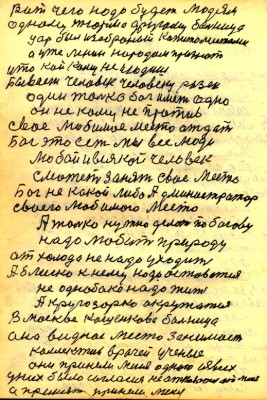 Вот чего надо будет людям
одному тюрьма другому больница
уар был изобрарый капитолистами
а уже ленин народам признат
и то кой кому не
бывает человек человеку разен
один только бог имет одно
он не кому не против
свое любимое место отдать
Бог это есть мы все люди
любой и всякой человек
сможет занят свое место
Бог не какой либо Администратор
своего любимого места
А только нужно делат по богову
надо любит природу
от холода не надо уходит
А близко к нему надо оставатся
не однобоко надо жит
А кругозорко окружатся
В Москве Кащенкова болница
она видное место занимает
коллектив врачей ученые
они приняли меня одного из всех
у них было согласия не отталкиват от меня
а принят